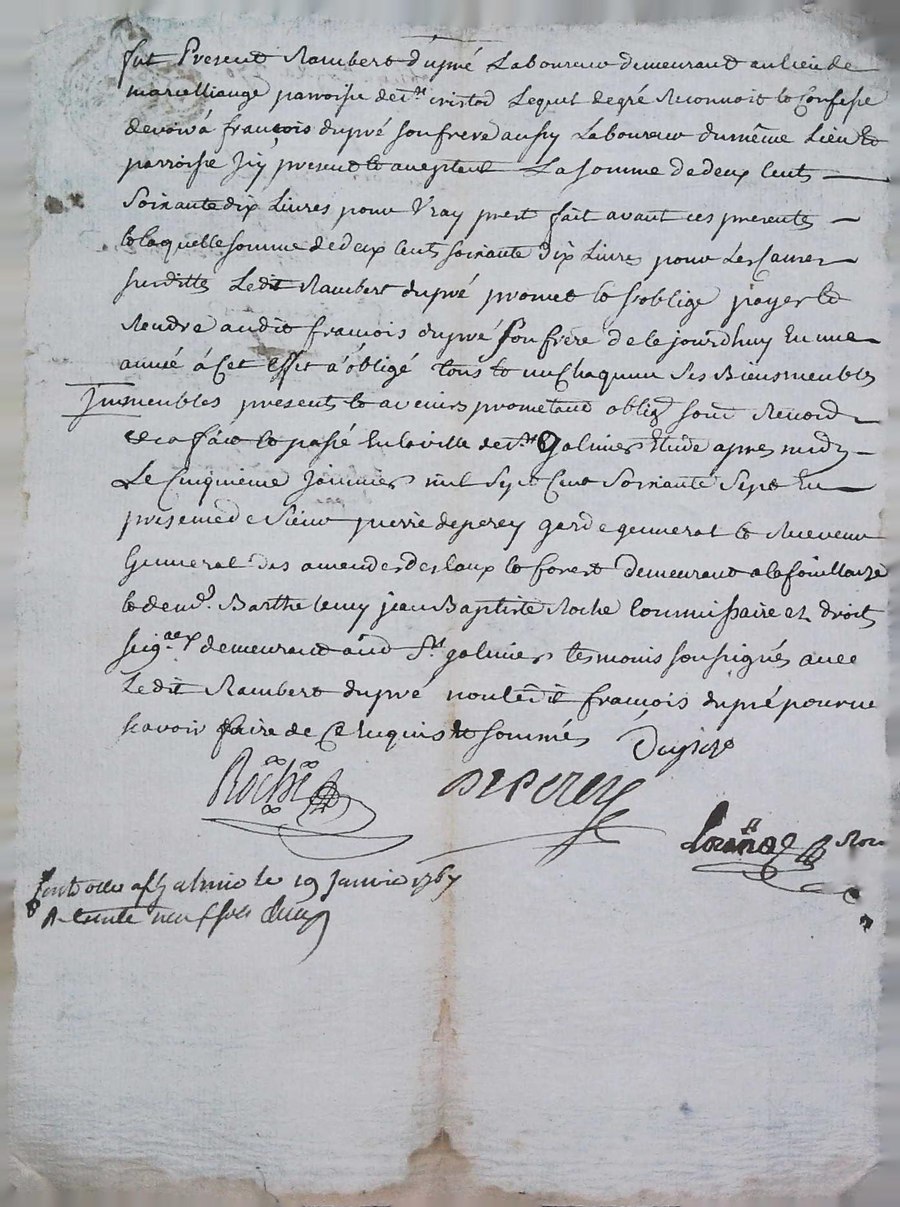 fut Present Rambert dupré Laboureur demeurant au lieu de
marcelliange parroisse de St. cristod Lequel de gré Reconnoit et Confesse
devoir à françois dupré son frere aussy Laboureur du même Lieu et
parroisse Icy present et aceptant La somme de deux Cents
Soixante dix Livres pour Vray prest fait avant ces presentes
et laquelle somme de deux Cents soixante dix Livres pour Les Causes
susdittes Ledit Rambert dupré promet et s'oblige payer et
Rendre audit françois dupré son frère de ce jourdhuy En une
année à Cet effet a obligé tous et un Chaquun ses Biens meubles
Immeubles presents et avenirs prometant oblig. soum. Renond.
fait et passé En la ville de St. Galmier Etude apres midy
Le Cinquieme Janvier mil Sept Cent Soixante Sept En
presence de Sieur pierre deperey garde general et Receveur
General des amendes des Eaux et forest demeurant a la fouillouze
et de Barthelemy jean Baptiste Roche Commissaire en droits
seig.aux demeurant aud. St. galmier temoins soussignés avec
Ledit Rambert dupré non ledit françois dupré pour ne
scavoir faire de Ce Enquis et sommés Dupré
Roche deperey
Not.
Controllé a St Galmier le 19 Janvier 1767
R. trente neuf sols